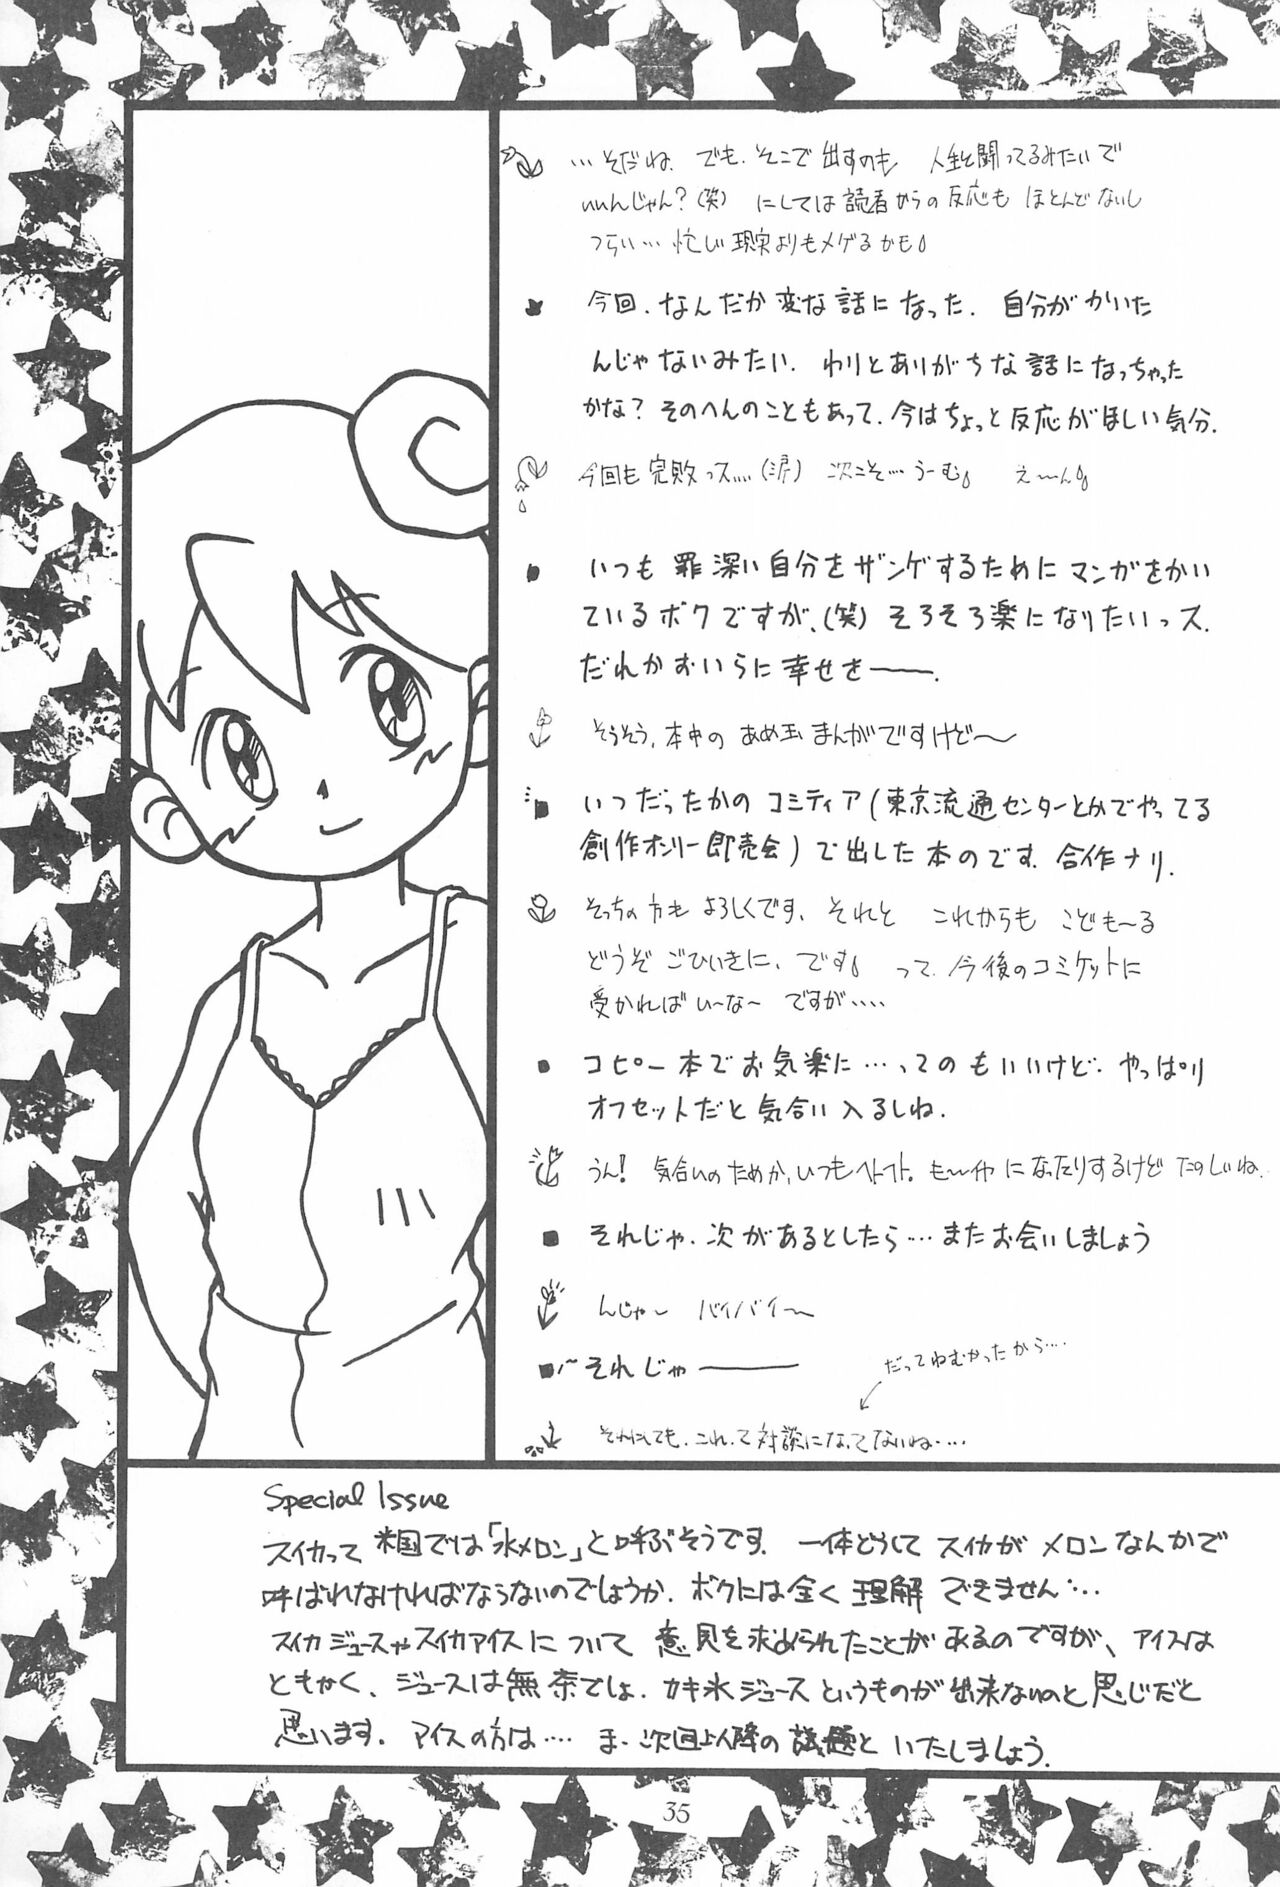 …そだね。でも、そこで出すのも 人生と闘ってるみたいで
いいんじゃん?(笑) にしては読者からの反応も ほとんどないし
つらい… 忙しい現実よりもメゲるかも
今回、なんだか変な話になった。自分がかいた
んじゃないみたい。わりとありがちな話になっちゃった
かな?そのへんのこともあって、今はちょっと反応がほしい気分。
今回も完敗っス……(涙) 次こそ…うーむ え〜ん
いつも罪深い自分をザンゲするためにマンガをかい
ているボクですが、(笑)そろそろ楽になりたいっス。
だれかおいらに幸せを——。
そうそう、本中のあめ玉まんがですけど〜
いつだったかのコミティア(東京流通センターとかでやってる
創作オンリー即売会)で出した本のです。合作ナリ。
そっちの方もよろしくです。それと これからも こども〜る
どうぞごひいきに、です って、今後のコミケットに
受かればい〜な〜 ですが……
コピー本でお気楽に…ってのもいいけど、やっぱり
オフセットだと気合い入るしね。
うん! 気合いのためか、いつもヘトヘト。も〜イヤ になったりするけど たのしいね。
それじゃ、次があるとしたら…またお会いしましょう
んじゃ〜 バイバイ〜
〜それじゃ———
だってねむかったから…
それにしても、これって対談になってないね……
Special Issue
スイカって米国では「水メロン」と呼ぶそうです。一体どうしてスイカがメロンなんかで
呼ばれなければならないのでしょうか。ボクには全く理解できません…
スイカジュースやスイカアイスについて意見を求められたことがあるのですが、アイスは
ともかく、ジュースは無茶でしょ。カキ氷ジュースというものが出来ないのと同じだと
思います。アイスの方は…… ま、次回以降の議題といたしましょう。
35